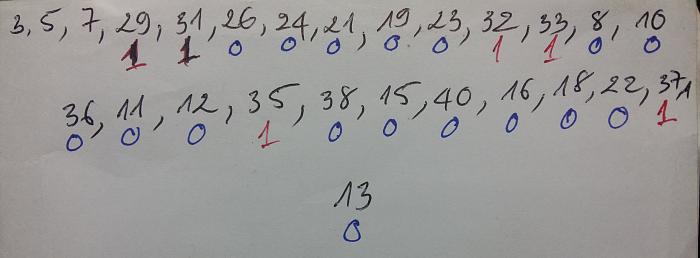 3, 5, 7, 29, 31, 26, 24, 21, 19, 23, 32, 33, 8, 10
1 1 0 0 0 0 0 1 1 0 0
36, 11, 12, 35, 38, 15, 40, 16, 18, 22, 37,
0 0 0 1 0 0 0 0 0 0 1
13
0